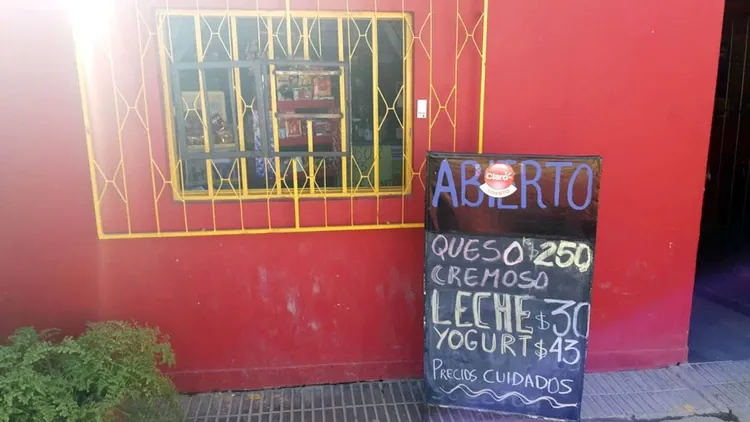 ABIERTO
Claro
QUESO $250
CREMOSO
LECHE $30
YOGURT $43
PRECIOS CUIDADOS